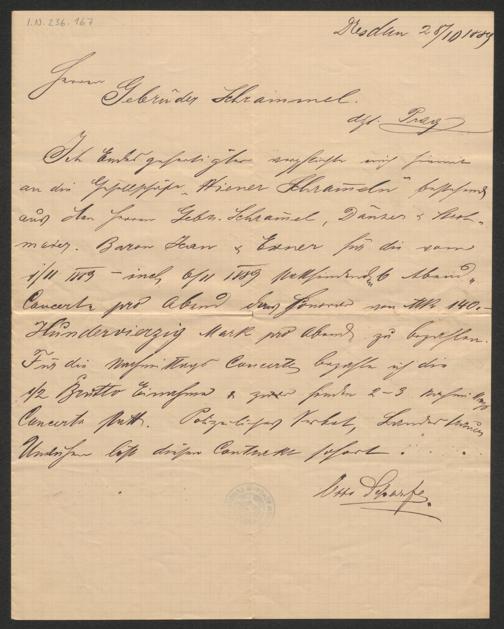 I.N. 236.167
Dresden 28/10 1889
Herren
Gebrüder Schrammel.
dzt. Prag
Ich Endesgefertigter verpflichte mich hiermit
an die Gesellschaft „Wiener Schrammeln" bestehend
aus den Herren Gebr. Schrammel, Dänzer & Stroh-
mayer. Baron Jean & Exner für die vom
1/11 1889 – incl. 6/11 1889 stattfindenden 6 Abend-
Concerte pro Abend Honorar von Mk 140.–
Hundertvierzig Mark pro Abend zu bezahlen.
Für die Nachmittags Concerte bezahle ich die
1/2 Brutto Einnahme & zwar finden 2–3 Nachmittags
Concerte statt. Polizeiliches Verbot, Landestrauer
Unruhen löst diesen Contract sofort
Otto Scharfe.